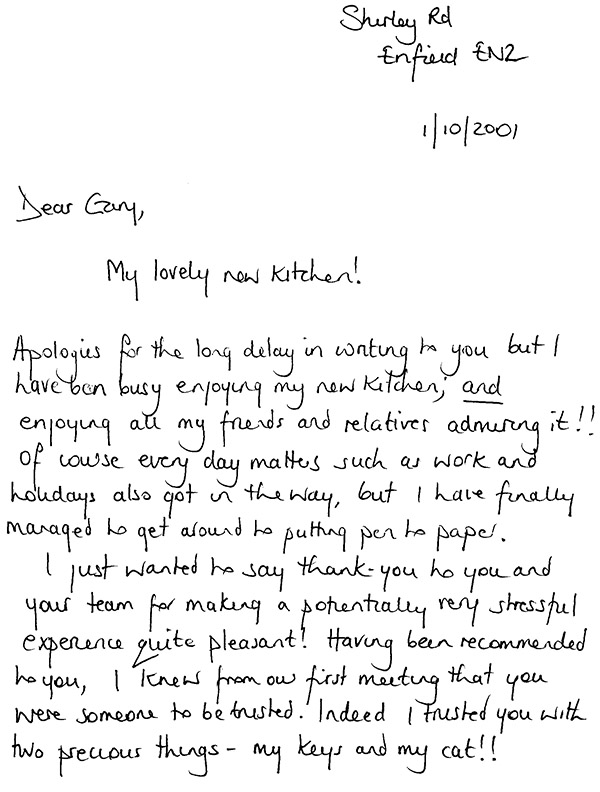 Shirley Rd
Enfield EN2
1/10/2001
Dear Gary,
My lovely new kitchen!
Apologies for the long delay in writing to you but I
have been busy enjoying my new kitchen; and
enjoying all my friends and relatives admiring it!!
Of course every day matters such as work and
holidays also got in the way, but I have finally
managed to get around to putting pen to paper.
I just wanted to say thank-you to you and
your team for making a potentially very stressful
experience quite pleasant! Having been recommended
to you, I knew from our first meeting that you
were someone to be trusted. Indeed I trusted you with
two precious things - my keys and my cat!!